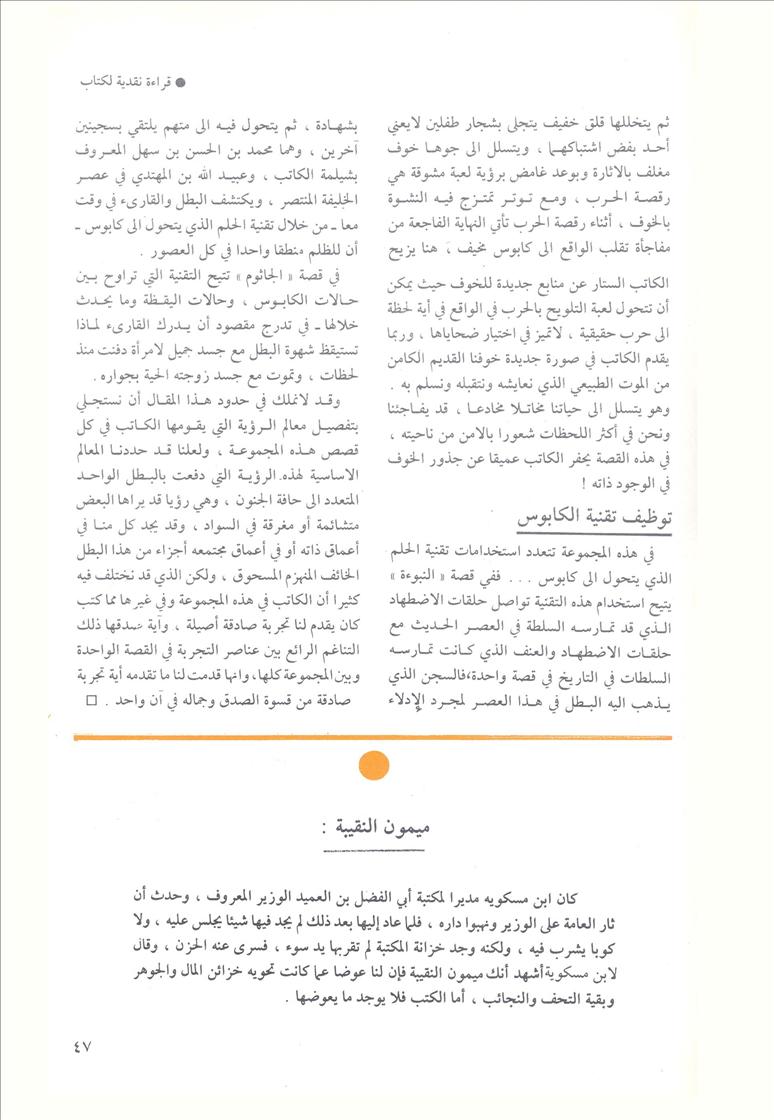 ● قراءة نقدية لكتاب
ثم يتخللها قلق خفيف يتجلى بشجار طفلين لايعني
أحد بفض اشتباكهما ، ويتسلل الى جوها خوف
مغلف بالاثارة وبوعد غامض برؤية لعبة مشوقة هي
رقصة الحرب ، ومع توتر تمتزج فيه النشوة
بالخوف ، أثناء رقصة الحرب تأتي النهاية الفاجعة من
مفاجأة تقلب الواقع الى كابوس مخيف ، هنا يزيح
الكاتب الستار عن منابع جديدة للخوف حيث يمكن
أن تتحول لعبة التلويح بالحرب في الواقع في أية لحظة
الى حرب حقيقية ، لاتميز في اختيار ضحاياها ، وربما
يقدم الكاتب في صورة جديدة خوفنا القديم الكامن
من الموت الطبيعي الذي نعايشه ونتقبله ونسلم به .
وهو يتسلل الى حياتنا مخاتلا مخادعا ، قد يفاجئنا
ونحن في أكثر اللحظات شعورا بالامن من ناحيته ،
في هذه القصة يحفر الكاتب عميقا عن جذور الخوف
في الوجود ذاته !
توظيف تقنية الكابوس
في هذه المجموعة تتعدد استخدامات تقنية الحلم
الذي يتحول الى كابوس . . . ففي قصة « النبوءة »
يتيح استخدام هذه التقنية تواصل حلقات الاضطهاد
الذي قد تمارسه السلطة في العصر الحديث مع
حلقات الاضطهاد والعنف الذي كانت تمارسه
السلطات في التاريخ في قصة واحدة، فالسجن الذي
يذهب اليه البطل في هذا العصر لمجرد الإدلاء
بشهادة ، ثم يتحول فيه الى متهم يلتقي بسجينين
آخرين ، وهما محمد بن الحسن بن سهل المعروف
بشيلمة الكاتب ، وعبيد الله بن المهتدي في عصر
الخليفة المنتصر ، ويكتشف البطل والقارىء في وقت
معا ـ من خلال تقنية الحلم الذي يتحول الى كابوس ـ
أن للظلم منطقا واحدا في كل العصور .
في قصة « الجاثوم » تتيح التقنية التي تراوح بين
حالات الكابوس ، وحالات اليقظة وما يحدث
خلالها ـ في تدرج مقصود أن يدرك القارىء لماذا
تستيقظ شهوة البطل مع جسد جميل لامرأة دفنت منذ
لحظات ، وتموت مع جسد زوجته الحية بجواره .
وقد لانملك في حدود هذا المقال أن نستجلي
بتفصيل معالم الرؤية التي يقومها الكاتب في كل
قصص هذه المجموعة ، ولعلنا قد حددنا المعالم
الاساسية لهذه الرؤية التي دفعت بالبطل الواحد
المتعدد الى حافة الجنون ، وهي رؤيا قد يراها البعض
متشائمة أو مغرقة في السواد ، وقد يجد كل منا في
أعماق ذاته أو في أعماق مجتمعه أجزاء من هذا البطل
الخائف المنهزم المسحوق ، ولكن الذي قد نختلف فيه
كثيرا أن الكاتب في هذه المجموعة وفي غيرها مما كتب
كان يقدم لنا تجربة صادقة أصيلة ، وآية صدقها ذلك
التناغم الرائع بين عناصر التجربة في القصة الواحدة
وبين المجموعة كلها، وانها قدمت لنا ما تقدمه أية تجربة
صادقة من قسوة الصدق وجماله في آن واحد . □
ميمون النقيبة :
كان ابن مسكويه مديرا لمكتبة أبي الفضل بن العميد الوزير المعروف ، وحدث أن
ثار العامة على الوزير ونهبوا داره ، فلما عاد إليها بعد ذلك لم يجد فيها شيئا يجلس عليه ، ولا
كوبا يشرب فيه ، ولكنه وجد خزانة المكتبة لم تقربها يد سوء ، فسرى عنه الحزن ، وقال
لابن مسكوية أشهد أنك ميمون النقيبة فإن لنا عوضا عما كانت تحويه خزائن المال والجوهر
وبقية التحف والنجائب ، أما الكتب فلا يوجد ما يعوضها .
٤٧